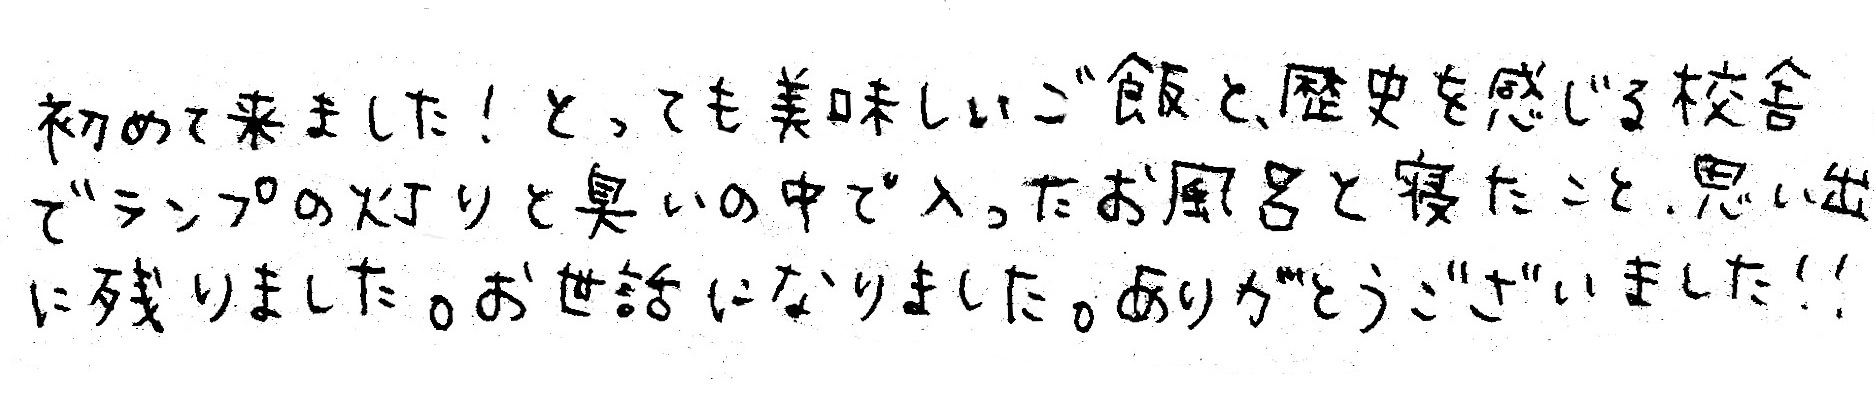 初めて来ました！とっても美味しいご飯と、歴史を感じる校舎
でランプの灯りと臭いの中で入ったお風呂と寝たこと、思い出
に残りました。お世話になりました。ありがとうございました！！